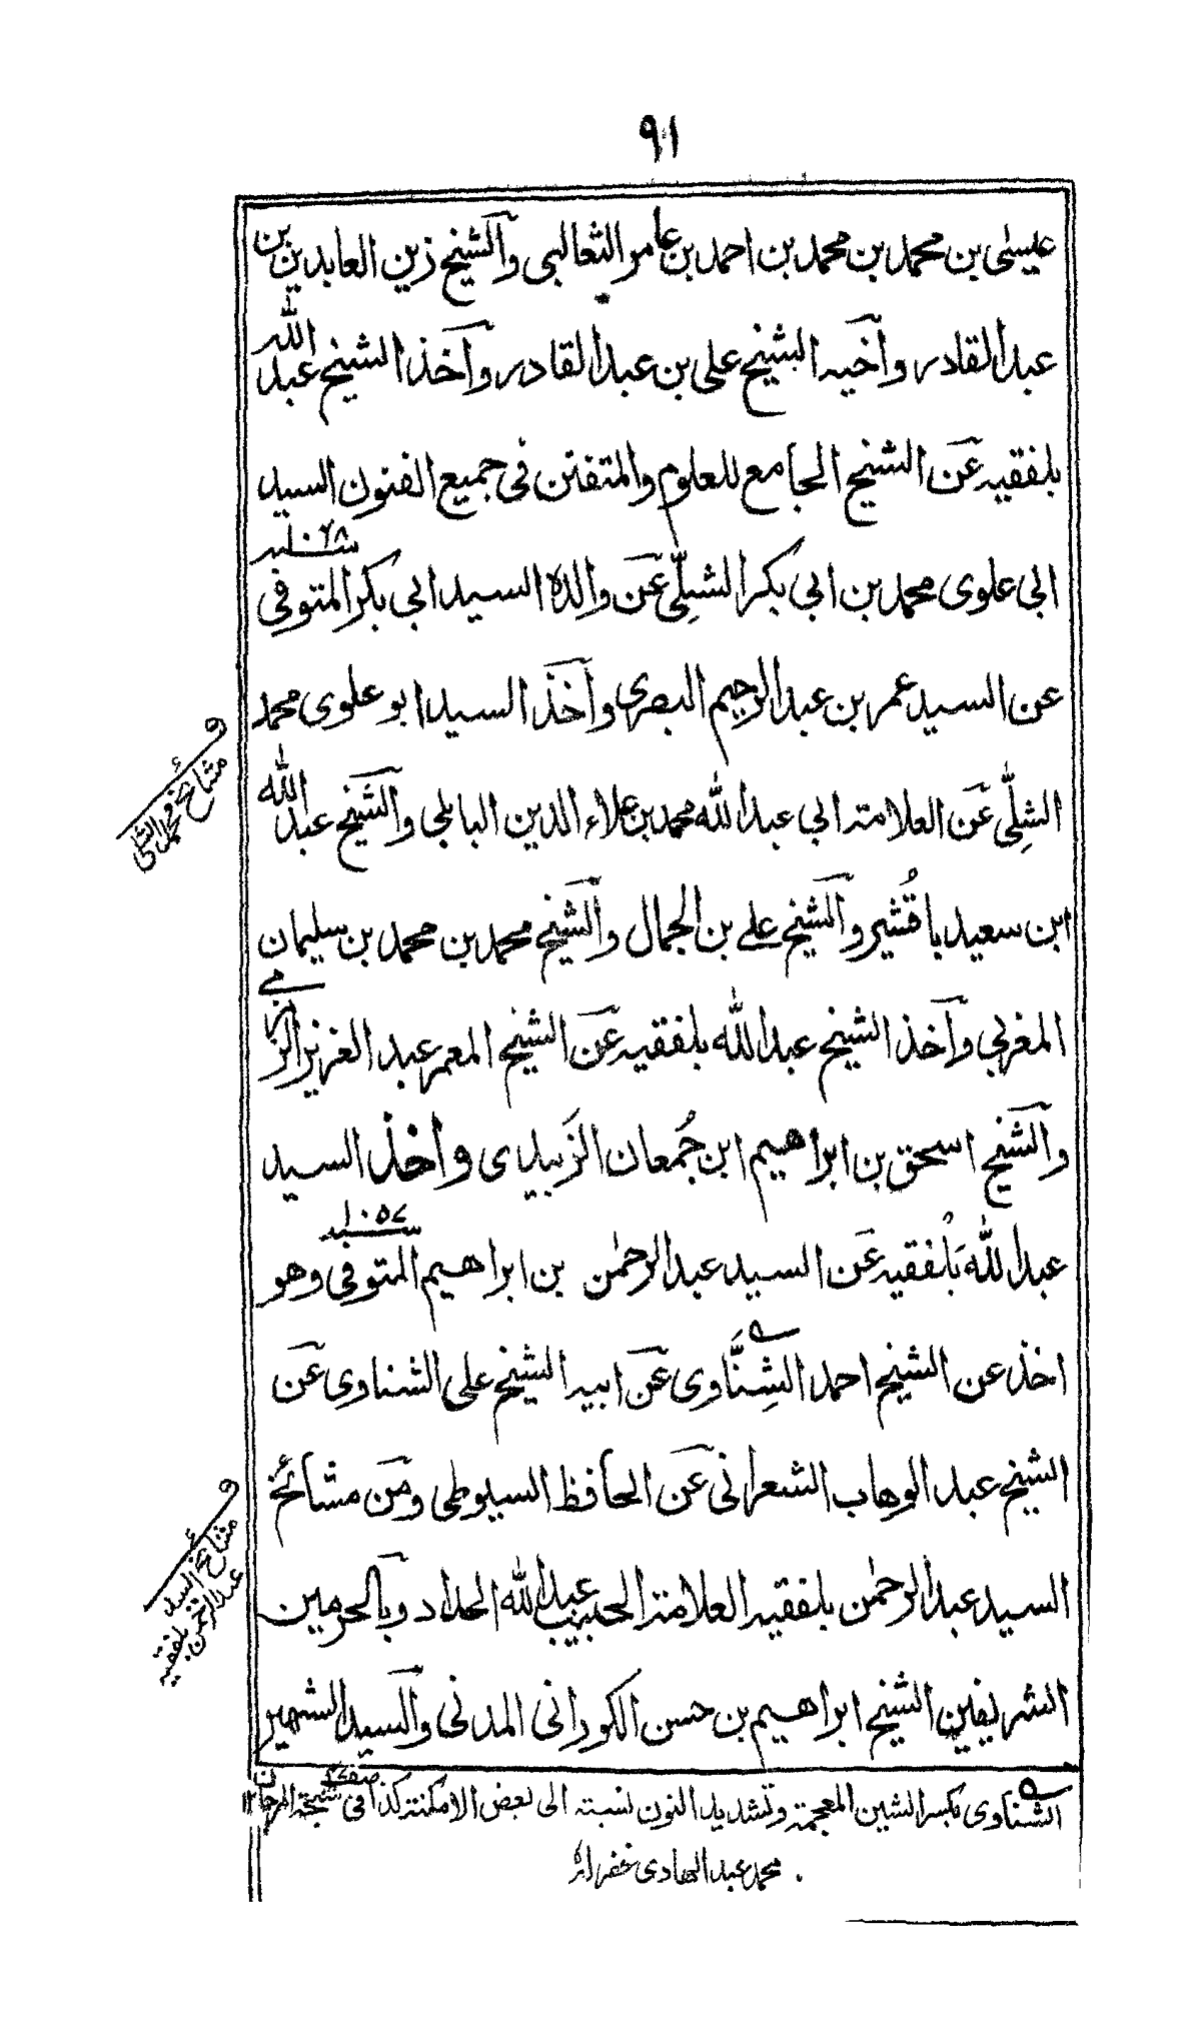 ٩١
عيسٰى بن محمد بن محمد بن احمد بن عامر الثعالبى والشيخ زين العابدين بن
عبد القادر واخيه الشيخ على بن عبد القادر واخذ الشيخ عبد الله
بلفقيه عن الشيخ الجامع للعلوم والمتفنن فى جميع الفنون السيد
ابى علوى محمد بن ابى بكر الشلِّى عن والده السيد ابى بكر المتوفى
عن السيد عمر بن عبد الرحيم البصرى واخذ السيد ابو علوى محمد
الشلِّى عن العلامة ابى عبد الله محمد بن علاء الدين البابلى والشيخ عبد الله
ابن سعيد باقُشير والشيخ على بن الجمال والشيخ محمد بن محمد بن سليمان
المغربى واخذ الشيخ عبد الله بلفقيه عن الشيخ المعمر عبد العزيز الزمزمى
والشيخ اسحق بن ابراهيم ابن جُمعان الزَبيدى واخذ السيد
عبد الله بَلْفقيه عن السيد عبد الرحمٰن بن ابراهيم المتوفى سنه ١٠٥٧ وهو
اخذ عن الشيخ احمد الشِنَّاوى عن ابيه الشيخ على الشناوى عن
الشيخ عبد الوهاب الشعرانى عن الحافظ السيوطى ومن مشائخ
السيد عبد الرحمٰن بلفقيه العلامة الحبيب عبد الله الحداد وبالحرمين
الشريفين الشيخ ابراهيم بن حسن الكورانى المدنى والسيد الشهير
الشناوى بكسر الشين المعجمة وتشديد النون نسبته الى بعض الامكنة كذا فى
محمد عبد الهادى غفر له
مشائخ
محمد الشلى
مشائخ السيد
عبد الرحمن بلفقيه